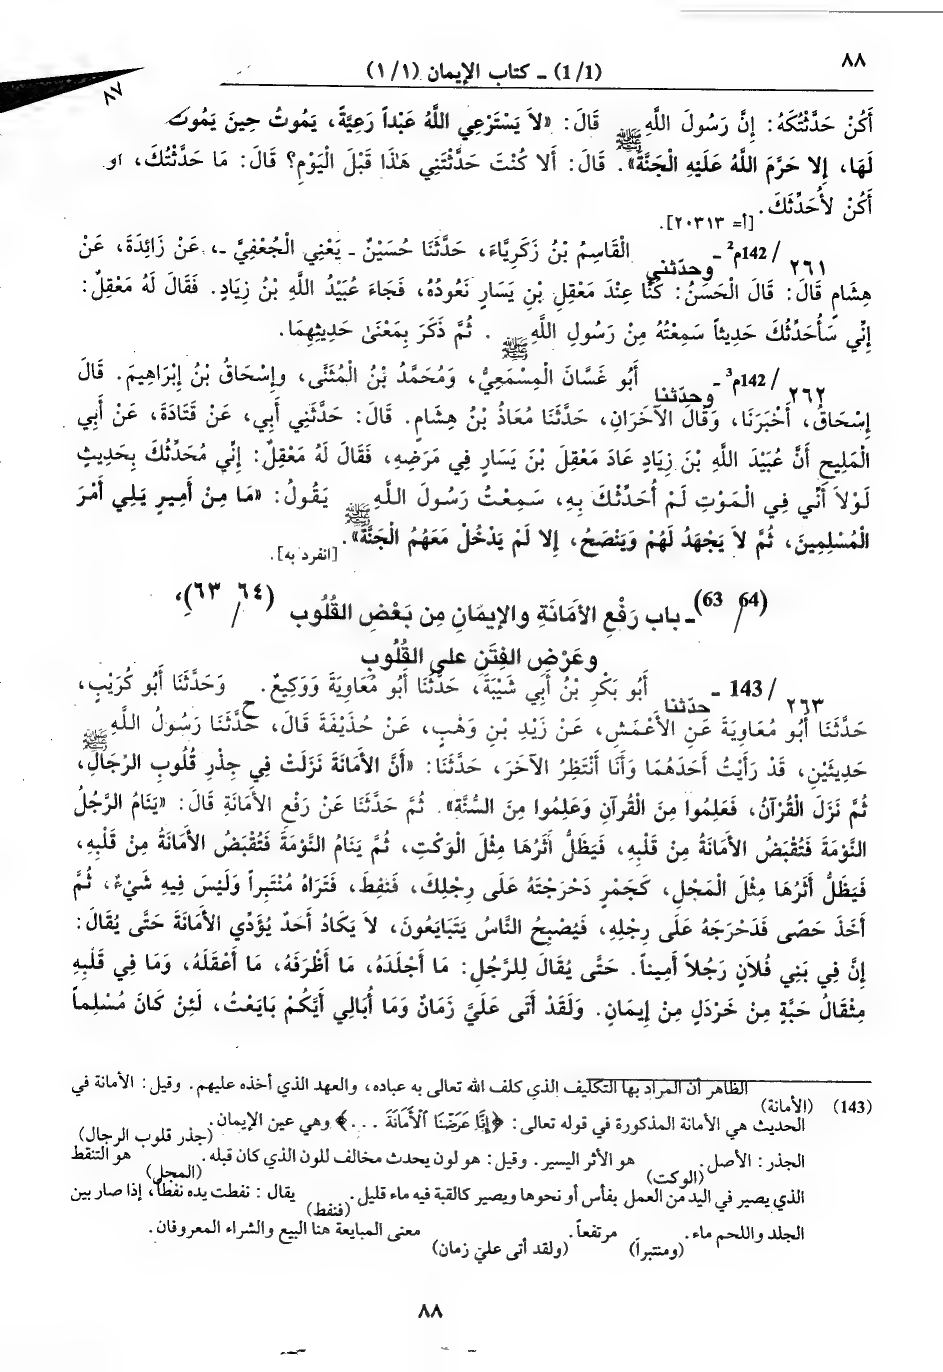 ٨٨
(1/1) ـ كتاب الإيمان (١/١)
٨٧
أَكُنْ حَدَّثْتُكَهُ: إِنَّ رَسُولَ اللَّهِ ﷺ قَالَ: «لاَ يَسْتَرْعِي اللَّهُ عَبْداً رَعِيَّةً، يَمُوتُ حِينَ يَمُوتُ وَهُوَ غَاشٌّ
لَهَا، إِلا حَرَّمَ اللَّهُ عَلَيْهِ الْجَنَّةَ». قَالَ: أَلا كُنْتَ حَدَّثْتَنِي هَـٰذَا قَبْلَ الْيَوْمِ؟ قَالَ: مَا حَدَّثْتُكَ، أو لَمْ
أَكُنْ لأُحَدِّثَكَ. [أ= ٢٠٣١٣].
٢٦١ / 142م² ـ وحدّثني الْقَاسِمُ بْنُ زَكَرِيَّاءَ، حَدَّثَنَا حُسَيْنٌ ـ يَعْنِي الْجُعْفِيَّ ـ، عَنْ زَائِدَةَ، عَنْ
هِشَامٍ قَالَ: قَالَ الْحَسَنُ: كُنَّا عِنْدَ مَعْقِلِ بْنِ يَسَارٍ نَعُودُهُ، فَجَاءَ عُبَيْدُ اللَّهِ بْنُ زِيَادٍ. فَقَالَ لَهُ مَعْقِلٌ:
إِنِّي سَأُحَدِّثُكَ حَدِيثاً سَمِعْتُهُ مِنْ رَسُولِ اللَّهِ ﷺ. ثُمَّ ذَكَرَ بِمَعْنَىٰ حَدِيثِهِمَا.
٢٦٢ / 142م³ ـ وحدّثنا أَبُو غَسَّانَ الْمِسْمَعِيُّ، وَمُحَمَّدُ بْنُ الْمُثَنَّى، وإِسْحَاقُ بْنُ إِبْرَاهِيمَ. قَالَ
إِسْحَاقُ، أَخْبَرَنَا، وَقَالَ الآخَرَانِ، حَدَّثَنَا مُعَاذُ بْنُ هِشَامٍ. قَالَ: حَدَّثَنِي أَبِي، عَنْ قَتَادَةَ، عَنْ أَبِي
الْمَلِيحِ أَنَّ عُبَيْدَ اللَّهِ بْنَ زِيَادٍ عَادَ مَعْقِلَ بْنَ يَسَارٍ فِي مَرَضِهِ، فَقَالَ لَهُ مَعْقِلٌ: إِنِّي مُحَدِّثُكَ بِحَدِيثٍ
لَوْلاَ أَنِّي فِي الْمَوْتِ لَمْ أُحَدِّثْكَ بِهِ، سَمِعْتُ رَسُولَ اللَّهِ ﷺ يَقُولُ: «مَا مِنْ أَمِيرٍ يَلِي أَمْرَ
الْمُسْلِمِينَ، ثُمَّ لاَ يَجْهَدُ لَهُمْ وَيَنْصَحُ، إِلا لَمْ يَدْخُلْ مَعَهُمُ الْجَنَّةَ». [انفرد به].
(64/63) ـ باب رَفْعِ الأمَانَةِ والإيمَانِ مِن بَعْضِ القُلُوبِ (٦٤/٦٣)،
وعَرْضِ الفِتَنِ على القُلُوبِ
٢٦٣ / 143 ـ حدّثنا أَبُو بَكْرِ بْنُ أَبِي شَيْبَةَ، حَدَّثَنَا أَبُو مُعَاوِيَةَ وَوَكِيعٌ. ح وَحَدَّثَنَا أَبُو كُرَيْبٍ،
حَدَّثَنَا أَبُو مُعَاوِيَةَ عَنِ الأَعْمَشِ، عَنْ زَيْدِ بْنِ وَهْبٍ، عَنْ حُذَيْفَةَ قَالَ، حَدَّثَنَا رَسُولُ اللَّهِ ﷺ
حَدِيثَيْنِ، قَدْ رَأَيْتُ أَحَدَهُمَا وَأَنَا أَنْتَظِرُ الآخَرَ، حَدَّثَنَا: «أَنَّ الأَمَانَةَ نَزَلَتْ فِي جِذْرِ قُلُوبِ الرِّجَالِ،
ثُمَّ نَزَلَ الْقُرْآنُ، فَعَلِمُوا مِنَ الْقُرآنِ وَعَلِمُوا مِنَ السُّنَّةِ». ثُمَّ حَدَّثَنَا عَنْ رَفْعِ الأَمَانَةِ قَالَ: «يَنَامُ الرَّجُلُ
النَّوْمَةَ فَتُقْبَضُ الأَمَانَةُ مِنْ قَلْبِهِ، فَيَظَلُّ أَثَرُهَا مِثْلَ الْوَكْتِ، ثُمَّ يَنَامُ النَّوْمَةَ فَتُقْبَضُ الأَمَانَةُ مِنْ قَلْبِهِ،
فَيَظَلُّ أَثَرُهَا مِثْلَ الْمَجْلِ، كَجَمْرٍ دَحْرَجْتَهُ عَلَى رِجْلِكَ، فَنَفِطَ، فَتَرَاهُ مُنْتَبِراً وَلَيْسَ فِيهِ شَيْءٌ، ثُمَّ
أَخَذَ حَصًى فَدَحْرَجَهُ عَلَى رِجْلِهِ، فَيُصْبِحُ النَّاسُ يَتَبَايَعُونَ، لاَ يَكَادُ أَحَدٌ يُؤَدِّي الأَمَانَةَ حَتَّى يُقَالَ:
إِنَّ فِي بَنِي فُلاَنٍ رَجُلاً أَمِيناً. حَتَّى يُقَالَ لِلرَّجُلِ: مَا أَجْلَدَهُ، مَا أَظْرَفَهُ، مَا أَعْقَلَهُ، وَمَا فِي قَلْبِهِ
مِثْقَالُ حَبَّةٍ مِنْ خَرْدَلٍ مِنْ إِيمَانٍ. وَلَقَدْ أَتَى عَلَيَّ زَمَانٌ وَمَا أُبَالِي أَيَّكُمْ بَايَعْتُ، لَئِنْ كَانَ مُسْلِماً
(143) (الأمانة) الظاهر أن المراد بها التكليف الذي كلف الله تعالى به عباده، والعهد الذي أخذه عليهم. وقيل: الأمانة في
الحديث هي الأمانة المذكورة في قوله تعالى: ﴿إِنَّا عَرَضْنَا الْأَمَانَةَ ...﴾ وهي عين الإيمان. (جذر قلوب الرجال)
الجذر: الأصل. (الوكت) هو الأثر اليسير. وقيل: هو لون يحدث مخالف للون الذي كان قبله. (المجل) هو التنفط
الذي يصير في اليد من العمل بفأس أو نحوها ويصير كالقبة فيه ماء قليل. (فنفط) يقال: نفطت يده نفطاً، إذا صار بين
الجلد واللحم ماء. (ومنتبراً) مرتفعاً. (ولقد أتى عليّ زمان) معنى المبايعة هنا البيع والشراء المعروفان.
٨٨